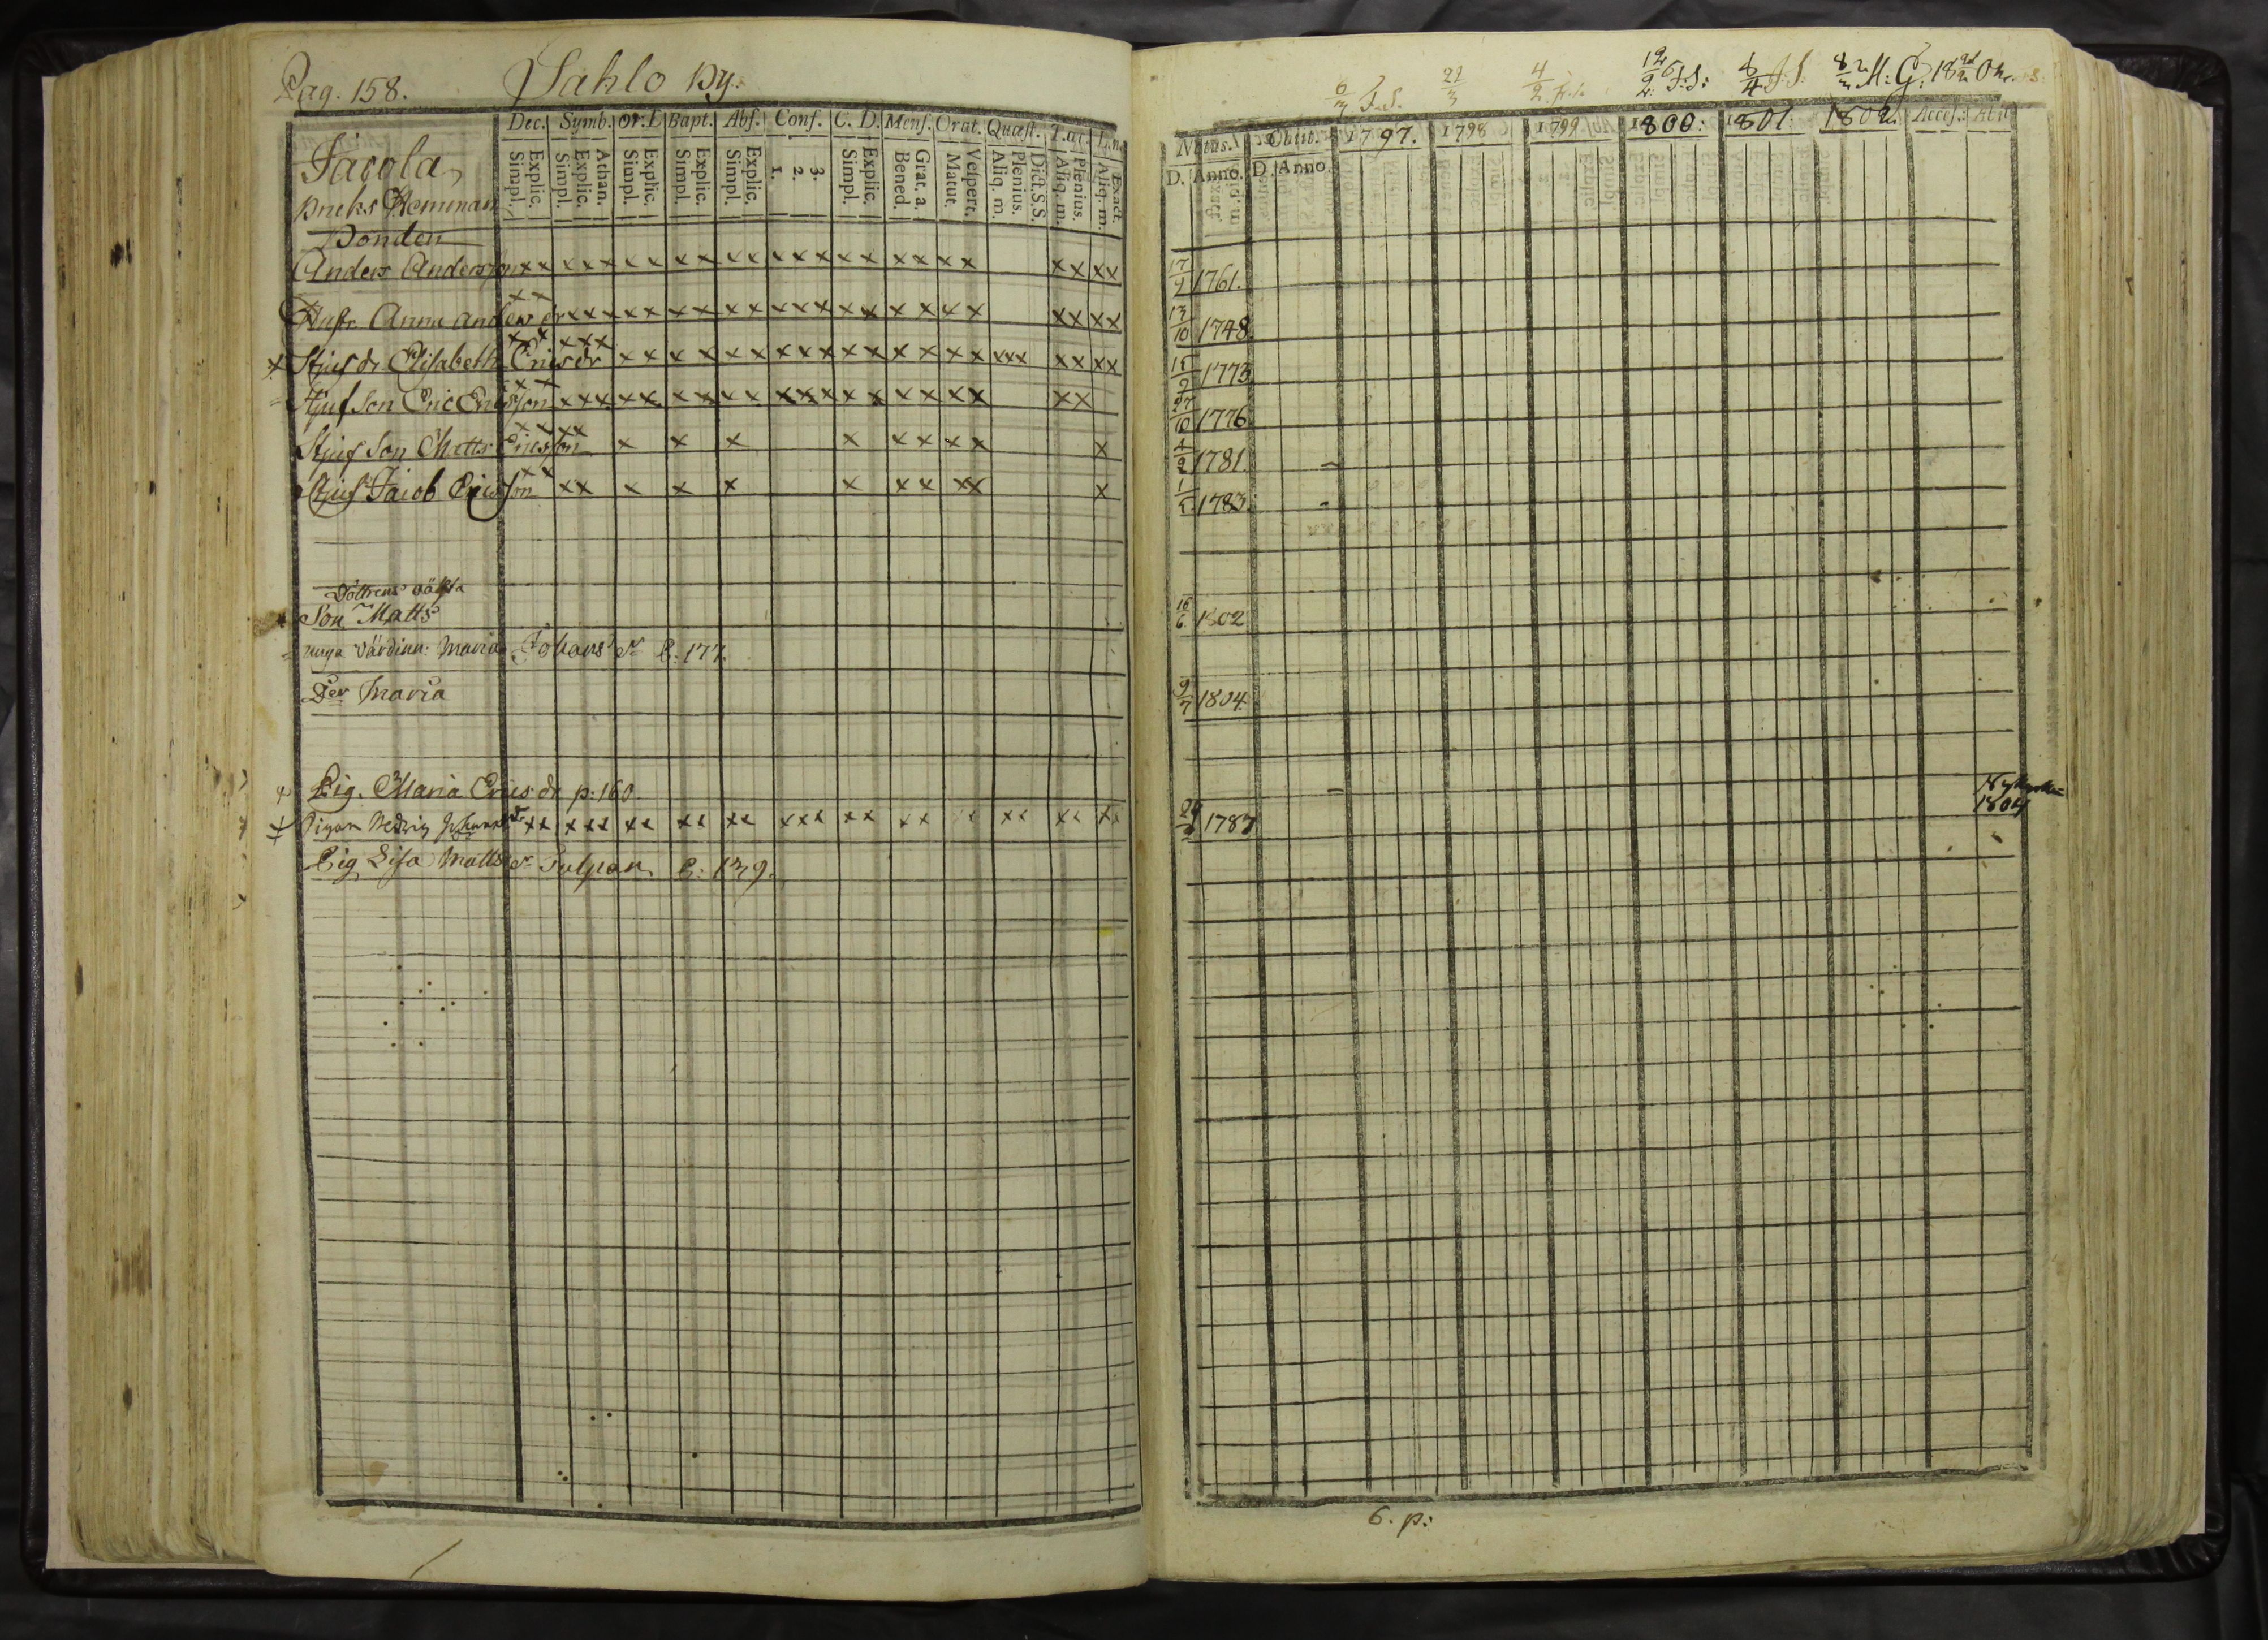 Pag. 158. Sahlo By.
Dec. Symb. Or: D Bapt. Abs. Conf. C. D. Mens. Orat. Quæst. T.æc.
Jacola
Bruks Hemman
Explic. Simpl. Athan. Explic. Simpl. Explic. Simpl. Explic. Simpl. Explic. Simpl. 3. 2. 1. Explic. Simpl. Grat. a. Bened. Vespert. Matut. Dict. S.S. Plenius. Aliq. m. Plenius. Aliq. m. Exact. Aliq. m.
Bonden
Anders Andersson x x x x x x x x x x x x x x x x x x x x x x x
Hustr. Anna Anders dr x x x x x x x x x x x x x x x x x x x x x x x
Stjuf dr Elisabeth Erics dr x x x x x x x x x x x x x x x x x x x x x x x x x x
Stjuf Son Eric Ericsson x x x x x x x x x x x x x x x x x x x x x
Stjuf Son Matts Ericsson x x x x x x x x x x x x x
Stjuf Jacob Ericsson x x x x x x x x x x x x x
Dottrens oäkta
Son Matts
unga värdinn: Maria Johans dr P. 177.
Der Maria
Pig. Maria Erics dr p. 160.
Pigan Hedvig x x x x x x x x x x x x x x x x x x x x x x x x x x
Pig Lisa Matts dr Sulpan P: 139.
6/3 J.S. 21/3 4/2 12/2 J.S: 8/4 J.S. 8/3 M: G.
Natus. Obiit. 1797. 1798 1799 1800: 1801 1802 Access. Abiit
D. Anno. D. Anno
17/9 1761.
13/10 1748
15/9 1773
27/10 1776
1781.
1783.
16/6 1802
9/7 1804
1787 1804
6. p: